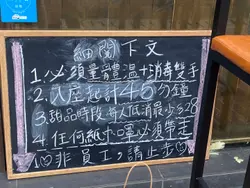 細閱下文
1.必須量體溫+消毒雙手
2.入座起計45分鐘
3.甜品時段 每人低消最少$28
4.任何紙巾口罩必須帶走
♡非員工,請止步♡